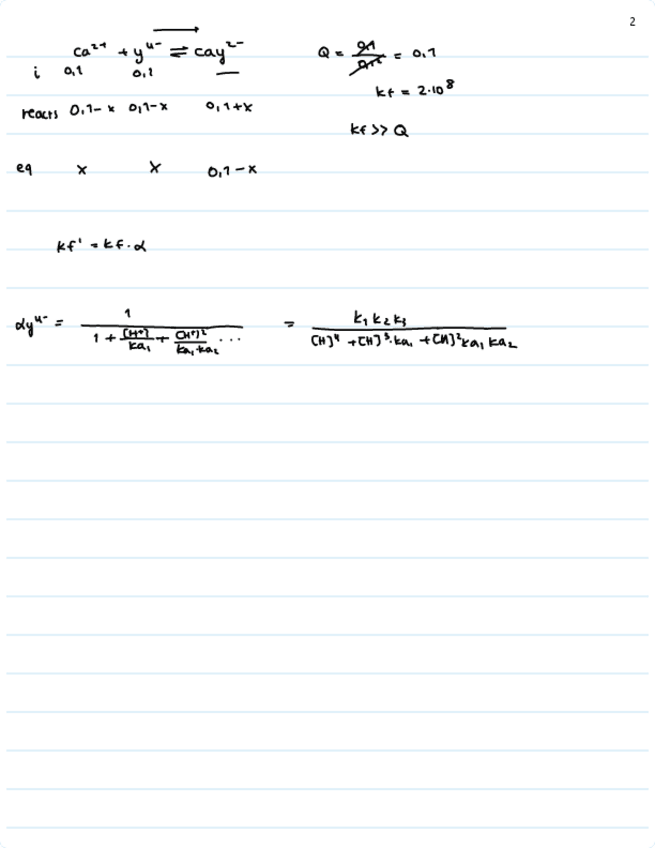 2
Ca²⁺ + y⁴⁻ ⇌ cay²⁻
i 0,1 0,1 —
reacts 0,1-x 0,1-x 0,1+x
eq x x 0,1-x
Q = = 0,1
kf = 2·10⁸
kf >> Q
kf' = kf·α
αy⁴⁻ = 1 / (1 + [H+]/ka₁ + [H+]²/ka₁+ka₂ ...) = k₁k₂k₃ / ([H]⁴ + [H]³·ka₁ + [H]²ka₁ka₂)